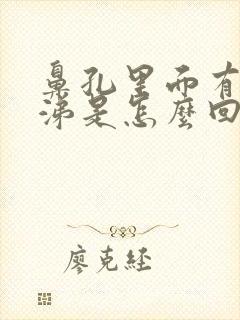 鼻孔里而有
涕是怎麼回
廖克經